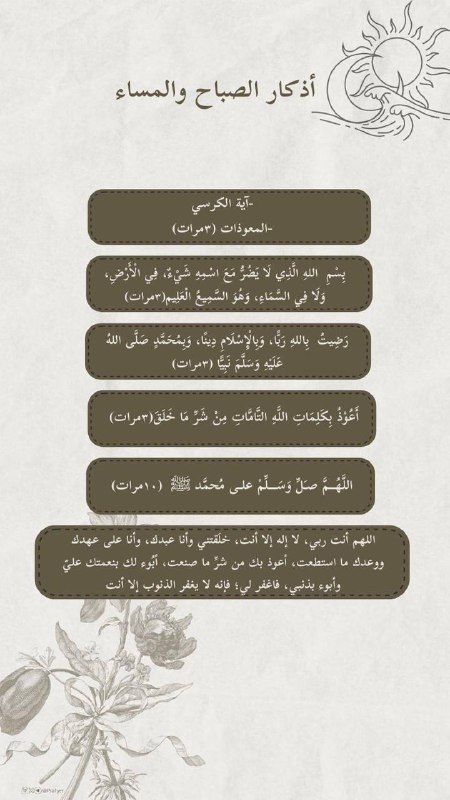 أذكار الصباح والمساء
-آية الكرسي
-المعوذات (٣مرات)
بِسْمِ اللهِ الَّذِي لَا يَضُرُّ مَعَ اسْمِهِ شَيْءٌ، فِي الْأَرْضِ،
وَلَا فِي السَّمَاءِ، وَهُوَ السَّمِيعُ الْعَلِيم(٣مرات)
رَضِيتُ بِاللهِ رَبًّا، وَبِالْإِسْلَامِ دِينًا، وَبِمُحَمَّدٍ صَلَّى اللهُ
عَلَيْهِ وَسَلَّمَ نَبِيًّا (٣مرات)
أَعُوْذُ بِكَلِمَاتِ اللَّهِ التَّامَّاتِ مِنْ شَرِّ مَا خَلَقَ(٣مرات)
اللَّهُـــمَّ صَـلِّ وَسَـــلِّمْ علـى مُحمَّد ﷺ (١٠مرات)
اللهم أنت ربي، لا إله إلا أنت، خلَقتني وأنا عبدك، وأنا على عهدك
ووعدك ما استطعت، أعوذ بك من شرِّ ما صنعت، أبُوء لك بنعمتك عليّ
وأبوء بذنبي، فاغفر لي؛ فإنه لا يغفر الذنوب إلا أنت